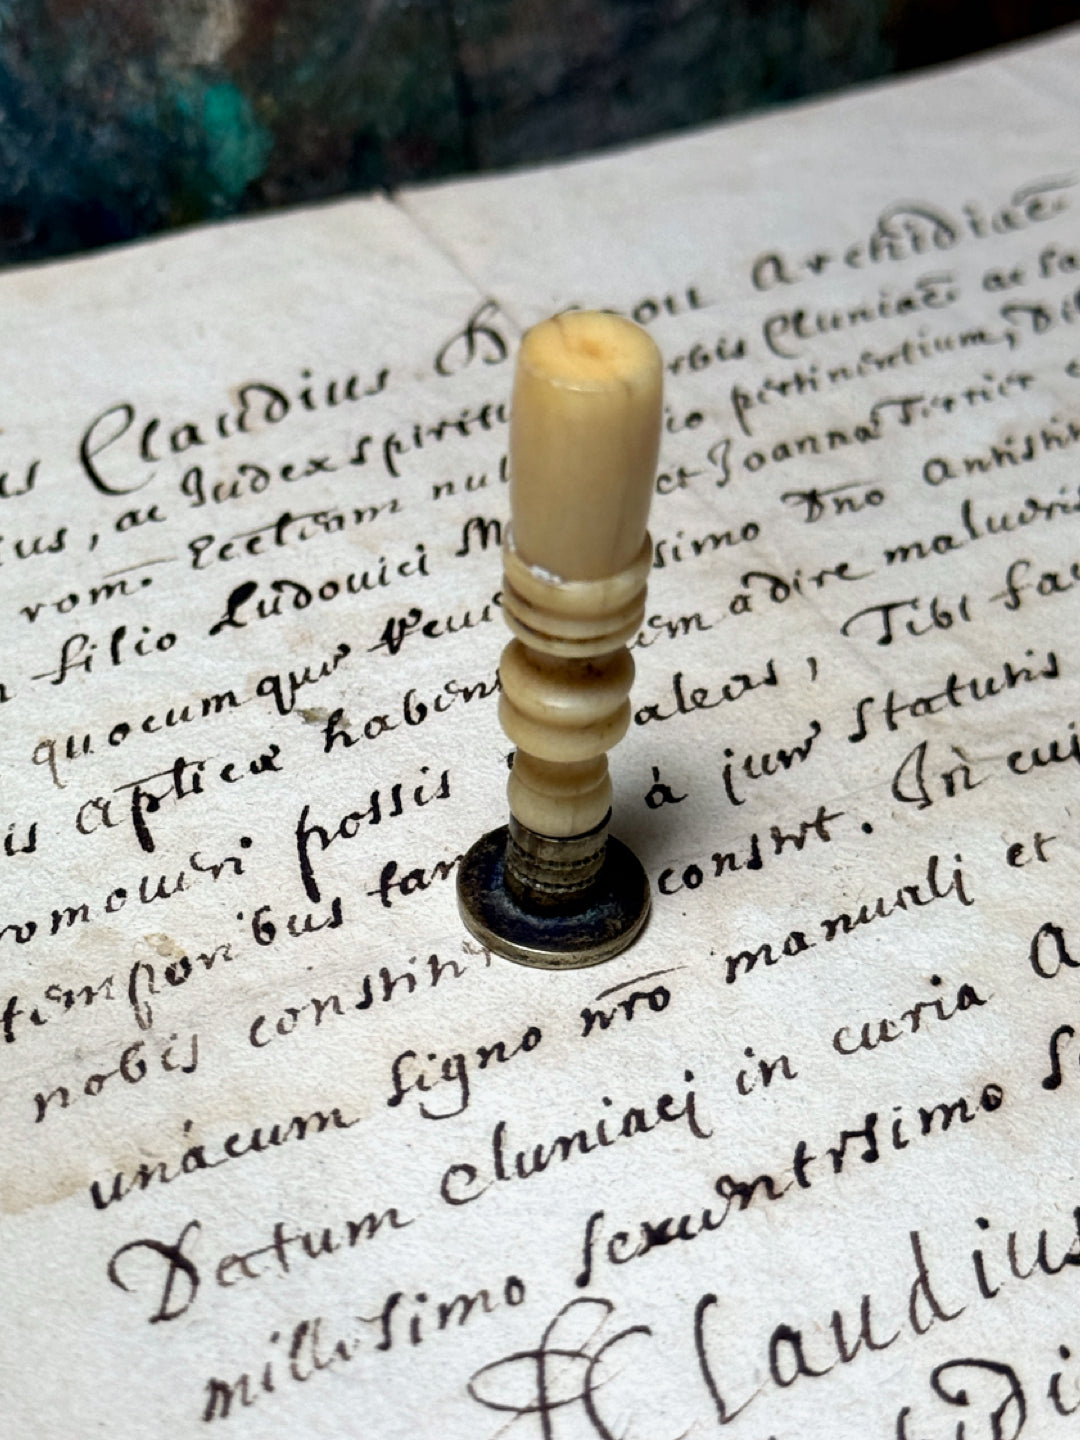 us Claudius archidiac̄
tus, ac Iudex spiritu orbis Cluniac̄ ac
rom. Ecclam nul io pertinentium, Dil
filio Ludovici M et Joanna Terrier
quocumque simo Dno Antisti
is Aptica habens em adire malueris
romoveri possis aleas, Tibi fa
temporibus tan à jure statutis
nobis constit constet. In cui
unàcum signo nr̄o manualj et
Datum Cluniacj in curia A
millesimo sexcentesimo Se
Claudius